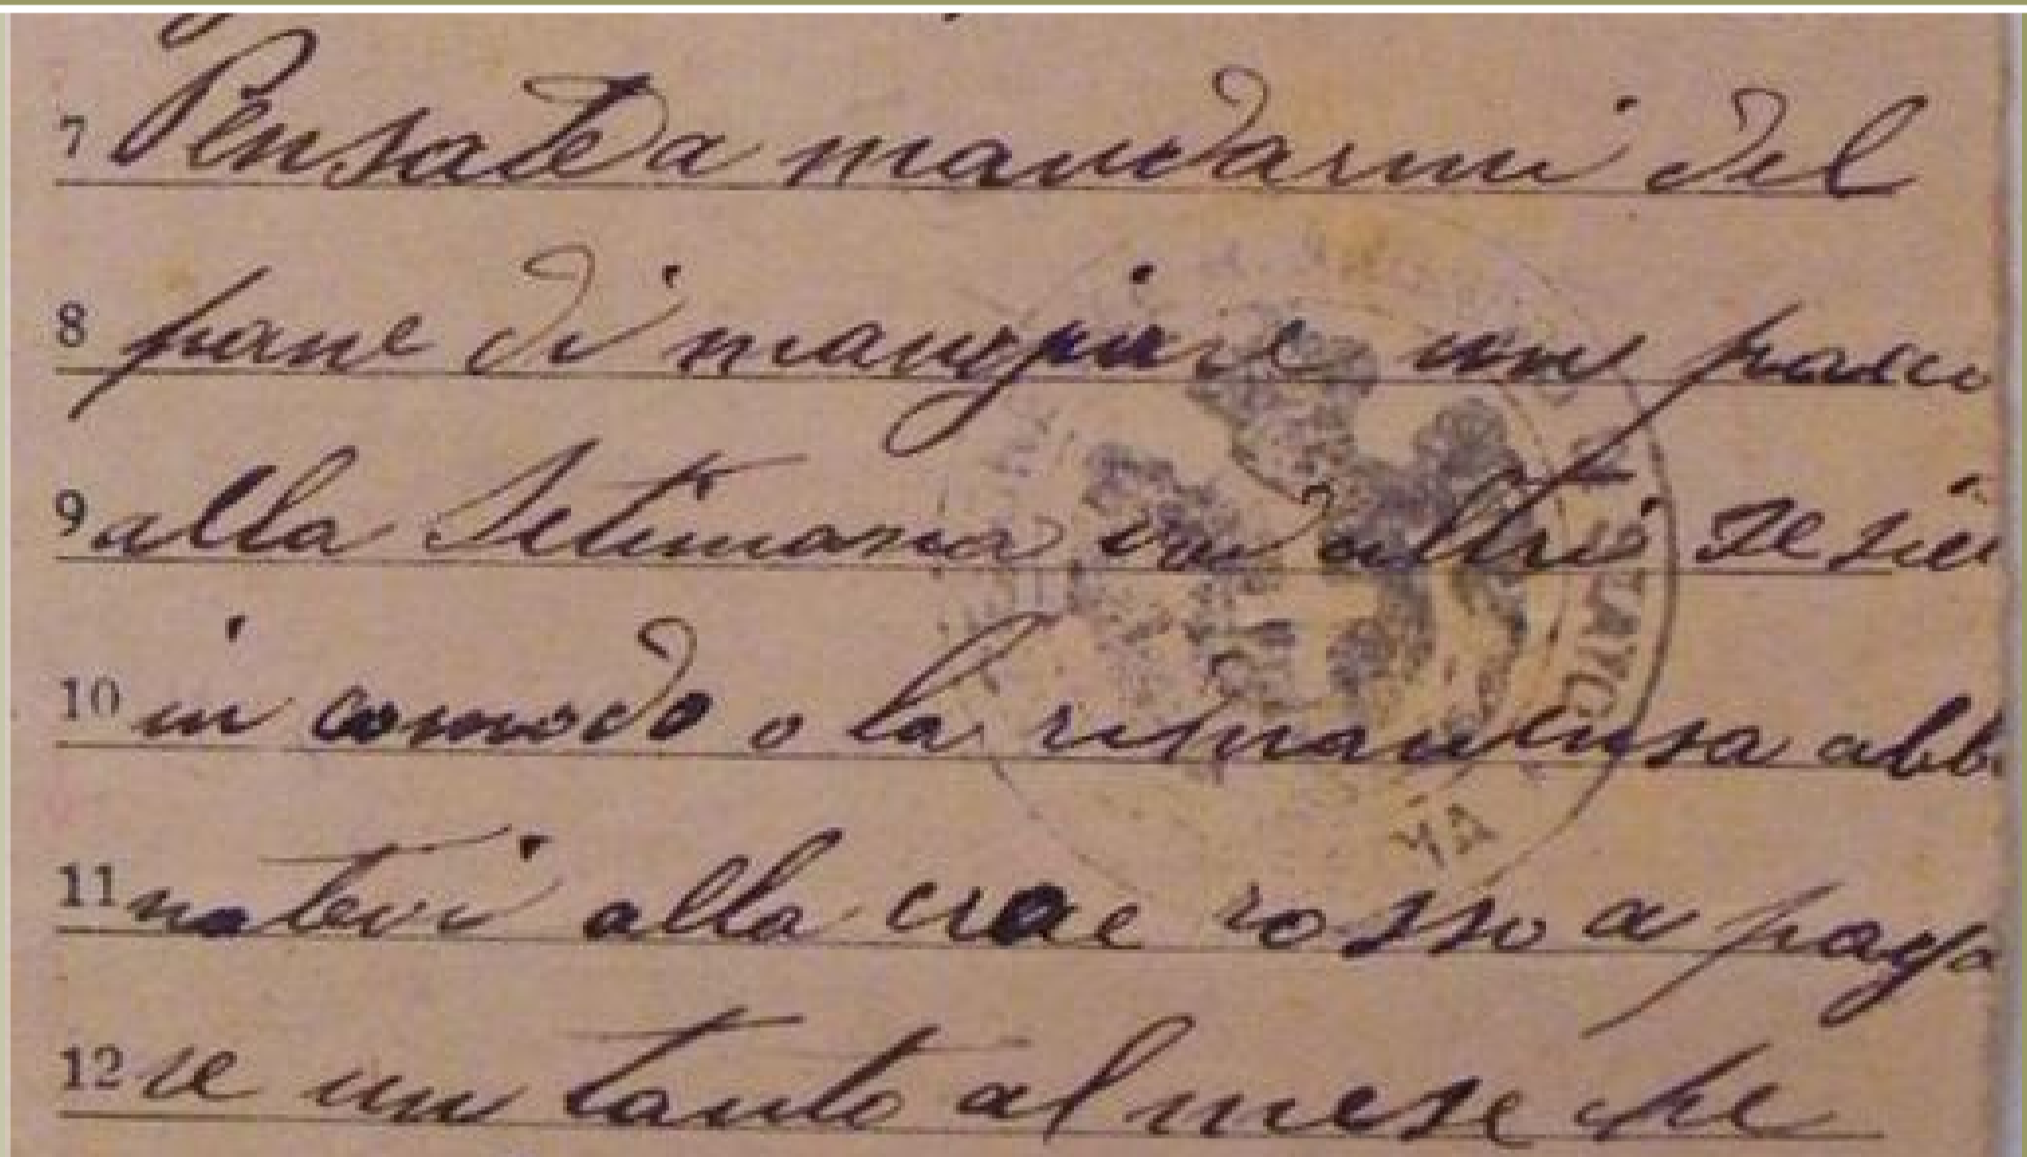 7 Pensate a mandarmi del
8 pane di mangiare un pacco
9 alla Setimana voi altri se siet
10 in comodo o la rimanensa abbo
11 natevi alla croce rosso a paga
12 re un tanto al mese che